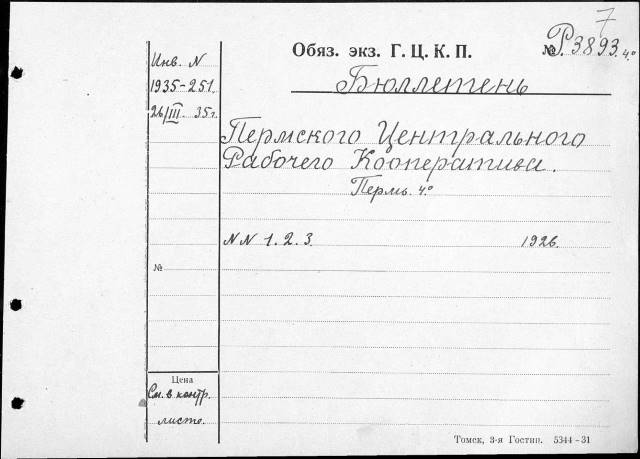 7
Обяз. экз. Г. Ц. К. П. № Р. 3893. 4.º
Бюллетень
Инв. N
1935-251.
26/III. 35 г.
Пермского Центрального
Рабочего Кооператива.
Пермь. 4.º
NN 1. 2. 3. 1926.
№
Цена
См. в контр.
листе.
Томск, 3-я Гостип. 5344-31